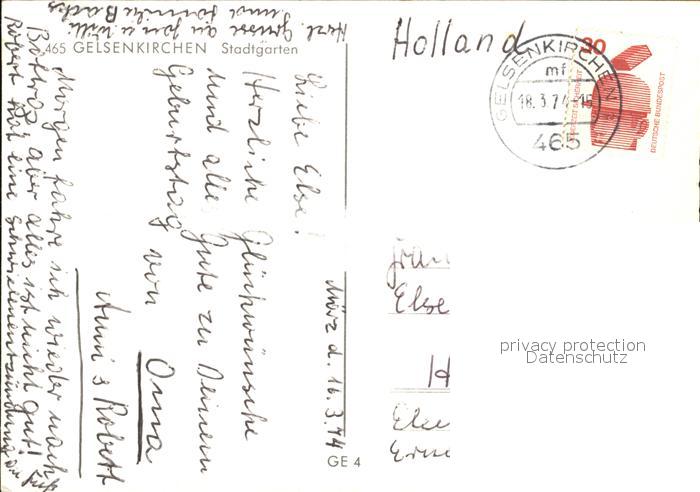 465 GELSENKIRCHEN Stadtgarten
Holland
GELSENKIRCHEN
mf
18.3.74-15
465
30
DEUTSCHE BUNDESPOST
März d. 16.3.74
Liebe Else!
Herzliche Glückwünsche
und alles Gute zu Deinem
Geburtstag von Oma
Anni & Robert
Morgen fahre ich wieder nach
Bottrop aber alles ist nicht gut!
Robert hat eine Sehnenentzündung am
Fuß
Herzl. Grüsse an Jan u. Willi
und Familie
Frau
Else
H
GE 4
privacy protection
Datenschutz